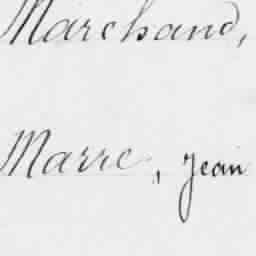 Marchand,
Marre, Jean